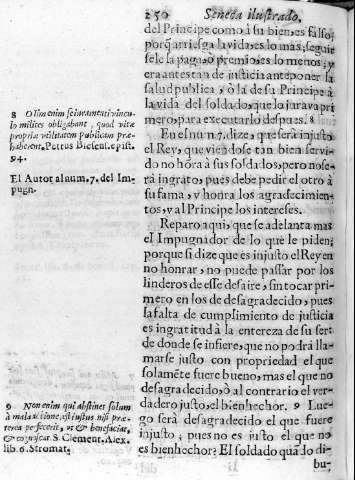 250 Seneca ilustrado.
del Principe como à su bien, es falso;
porq̃ arriesga la vida, es lo mas; seguir
sele la paga, ò premio, es lo menos; y
era antes tan de iusticia anteponer la
salud publica, ò la de su Principe à
la vida del soldado, que lo jurava pri
mero, para executarlo despues. 8
En el num. 7. dize, que serà injusto
el Rey, que viendose tan bien servi-
do no hõra à sus soldados, pero no se-
rà ingrato, pues debe pedir el otro à
su fama, y honra los agradecimien-
tos, y al Principe los intereses.
Reparo aqui, que se adelanta mas
el Impugnador de lo que le piden;
porque si dize que es injusto el Rey en
no honrar, no puede passar por los
linderos de esse desaire, sin tocar pri-
mero en los de desagradecido, pues
la falta de cumplimiento de justicia
es ingratitud à la entereza de su ser:
de donde se infiere, que no podrà lla-
marse justo con propriedad el que
solamẽte fuere bueno, mas el que no
desagradecido, ò al contrario el ver-
dadero justo, el bienhechor. 9 Lue-
go serà desagradecido el que fuere
injusto; pues no es justo el que no
es bienhechor? El soldado quã lo di-
bu-
8 Olim enim se iuramenti vincu-
lo milites obligabant, quod vitæ
propriæ utilitatem publicam præ-
haberent. Petrus Blesens. epist.
94.
El Autor al num. 7. del Im-
pugn.
9 Non enim qui abstinet solum
à mala actione, est iustus nisi præ-
terea perfecerit, ut & benefaciat,
& cognoscat. S. Clement. Alex.
lib. 6. Stromat.